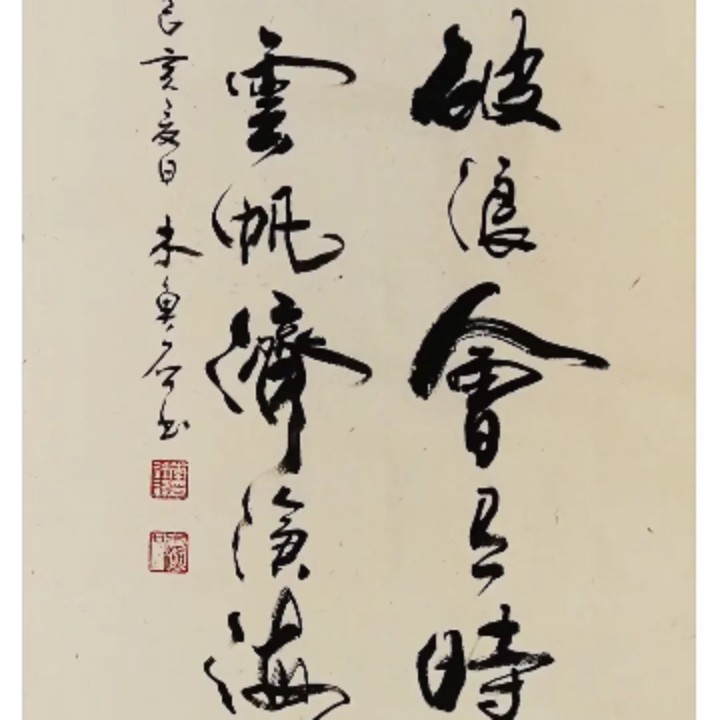 破浪會有時
雲帆濟滄海
己亥夏日